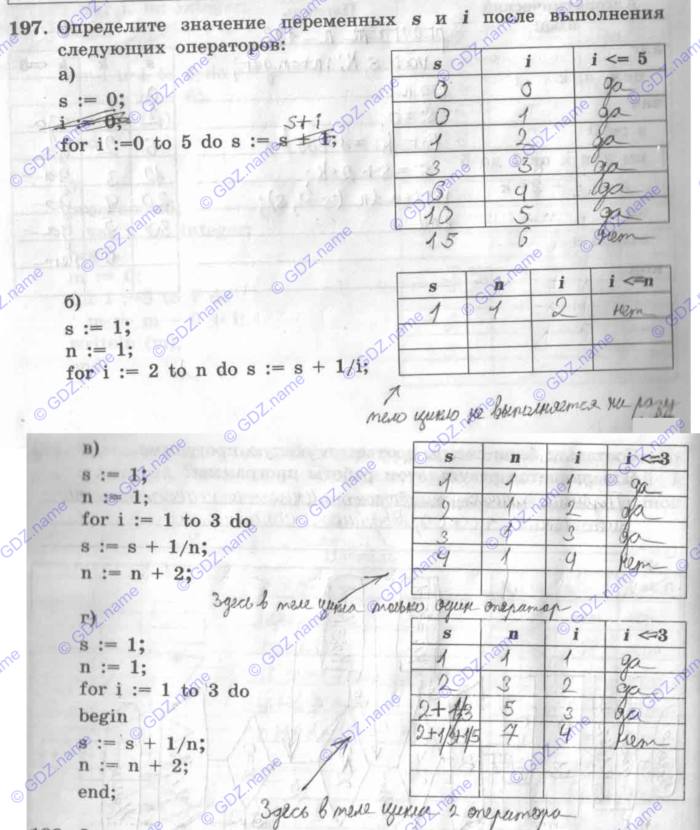 197. Определите значение переменных s и i после выполнения
следующих операторов:
а)
s := 0;
i := 0;
s+i
for i :=0 to 5 do s := s + 1;
s i i <= 5
0 0 да
0 1 да
1 2 да
3 3 да
6 4 да
10 5 да
15 6 нет
б)
s := 1;
n := 1;
for i := 2 to n do s := s + 1/i;
s n i i <=n
1 1 2 нет
тело цикло не выполняется ни разу
в)
s := 1;
n := 1;
for i := 1 to 3 do
s := s + 1/n;
n := n + 2;
s n i i <=3
1 1 1 да
2 1 2 да
3 1 3 да
4 1 4 нет
Здесь в теле цикла только один оператор
г)
s := 1;
n := 1;
for i := 1 to 3 do
begin
s := s + 1/n;
n := n + 2;
end;
s n i i <=3
1 1 1 да
2 3 2 да
2+1/3 5 3 да
2+1/3+1/5 7 4 нет
Здесь в теле цикла 2 оператора
© GDZ.name